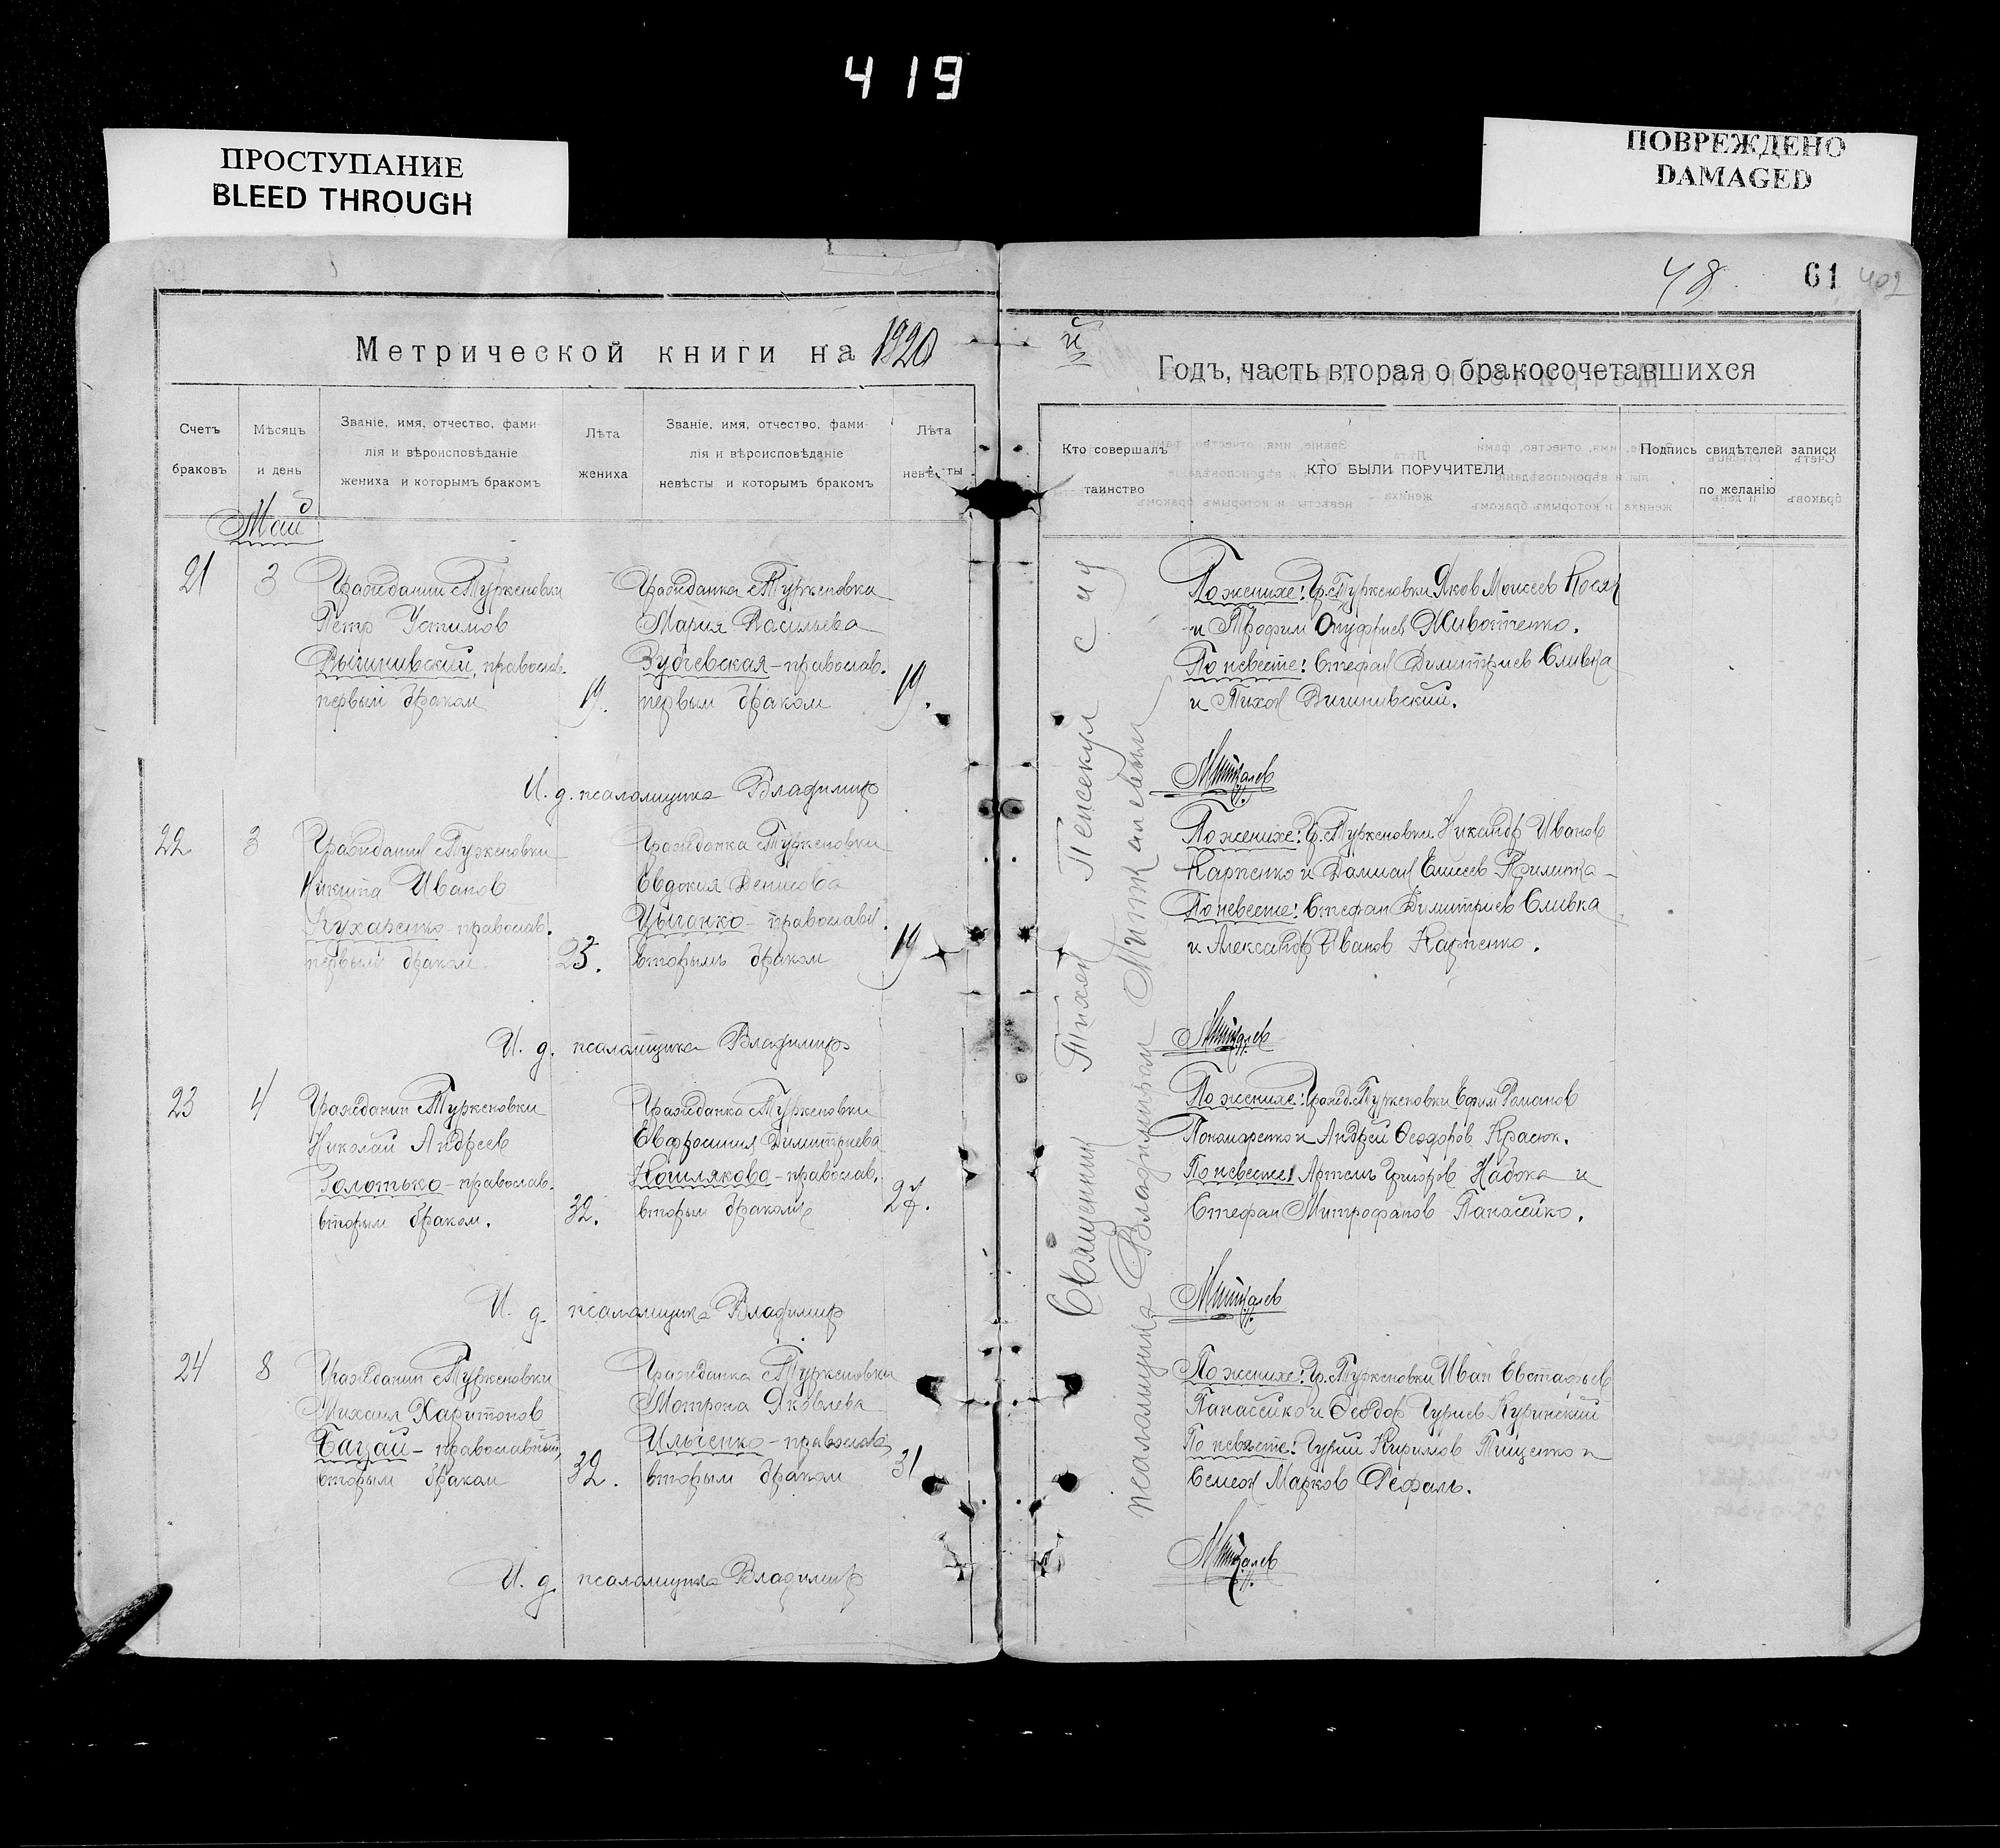 419
ПРОСТУПАНИЕ
BLEED THROUGH
ПОВРЕЖДЕНО
DAMAGED
48 61 402
Метрической книги на 1920
й Годъ, часть вторая о бракосочетавшихся
Счетъ браковъ
Мѣсяцъ и день
Званіе, имя, отчество, фами-
лія и вѣроисповѣданіе
жениха и которымъ бракомъ
Лѣта жениха
Званіе, имя, отчество, фами-
лія и вѣроисповѣданіе
невѣсты и которымъ бракомъ
Лѣта невѣсты
Кто совершалъ таинство
КТО БЫЛИ ПОРУЧИТЕЛИ
Подпись свидѣтелей записи
по желанію
Май
21 3
Гражданин с Туркеновки
Петр Устимов
Вышнивский, православ.
первым браком 19.
Гражданка с Туркеновки
Мария Васильева
Зубчевская - православ.
первым браком 19.
По женихе: Гр. с Туркеновки Яков Моисеев
и Трофим Онуфриев Животченко.
По невесте: Стефан Димитриев Сливка
и Тихон Вишнивский.
И. д. псаломщика Владимир Миткалев
22 3
Гражданин с Туркеновки
Никита Иванов
Кухаренко православ.
первым браком 23.
Гражданка с Туркеновки
Евдокия Денисова
Цыганко - православ.
вторым браком 19
По женихе: Гр. с Туркеновки Никандр Иванов
Карпенко и Дамиан Елисеев
По невесте: Стефан Димитриев Сливка
и Александр Иванов Карпенко.
И. д. псаломщика Владимир Миткалев
23 4
Гражданин с Туркеновки
Николай Андреев
Золотько - православ.
вторым браком. 32.
Гражданка с Туркеновки
Евфросиния Димитриева
Кошлякова - православ.
вторым браком 27.
По женихе: Гражд. с Туркеновки Ефим Романов
Пономаренко и Андрей Феодоров Красюк.
По невесте: Артем Григоров Набока и
Стефан Митрофанов Панасейко.
И. д. псаломщика Владимир Миткалев
24 8
Гражданин с Туркеновки
Михаил Харитонов
Бацай - православный,
вторым браком 32.
Гражданка с Туркеновки
Мотрона Яковлева
Ильченко - православ,
вторым браком 31
По женихе: Гр. с Туркеновки Иван Евстафьев
Панасейко и Феодор Гуриев Куринский
По невесте: Гурий Кирилов Пищенко и
Семен Марков
И. д. псаломщика Владимир Миткалев
Священник Тихон Пенскул с и д
псаломщика Владимиром Миткалевым